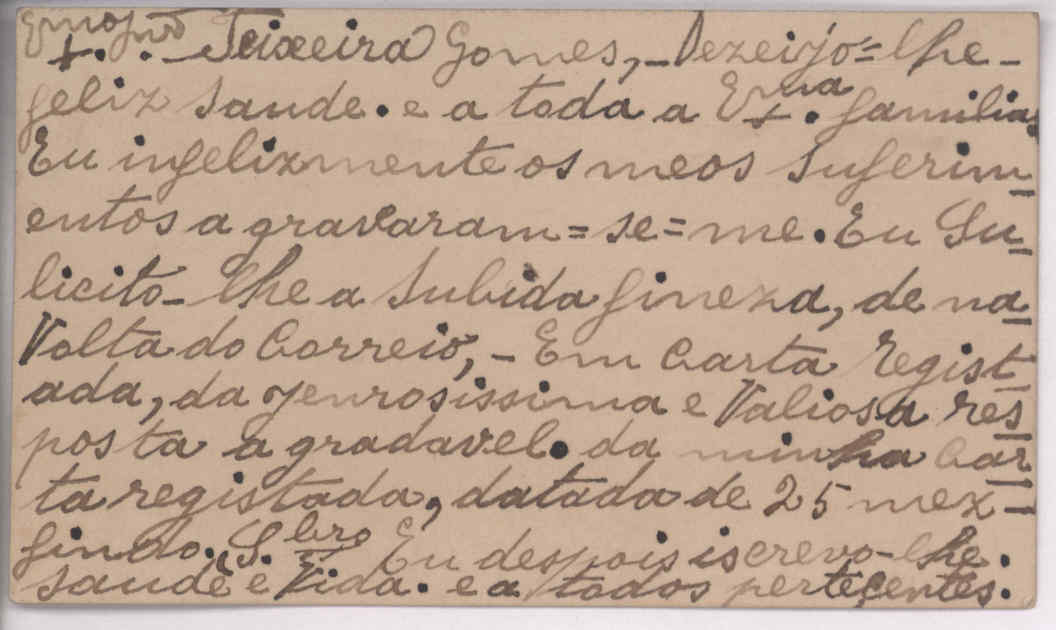 Exmo Snr
+. . - Teixeira Gomes, - Dezeijo = lhe -
feliz saude. e a toda a Exma. familia.
Eu infelizmente os meos suferim-
entos agravaram = se = me. Eu Su-
licito - lhe a subida fineza, de na
Volta do Correio, - Em Carta Regist-
ada, da jenrosissima e Valiosa res-
posta agradavel. da minha Car-
ta registada, datada de 25 mez -
findo. S.bro Eu despois iscrevo - lhe.
saude e Vida. e a todos pertecentes.